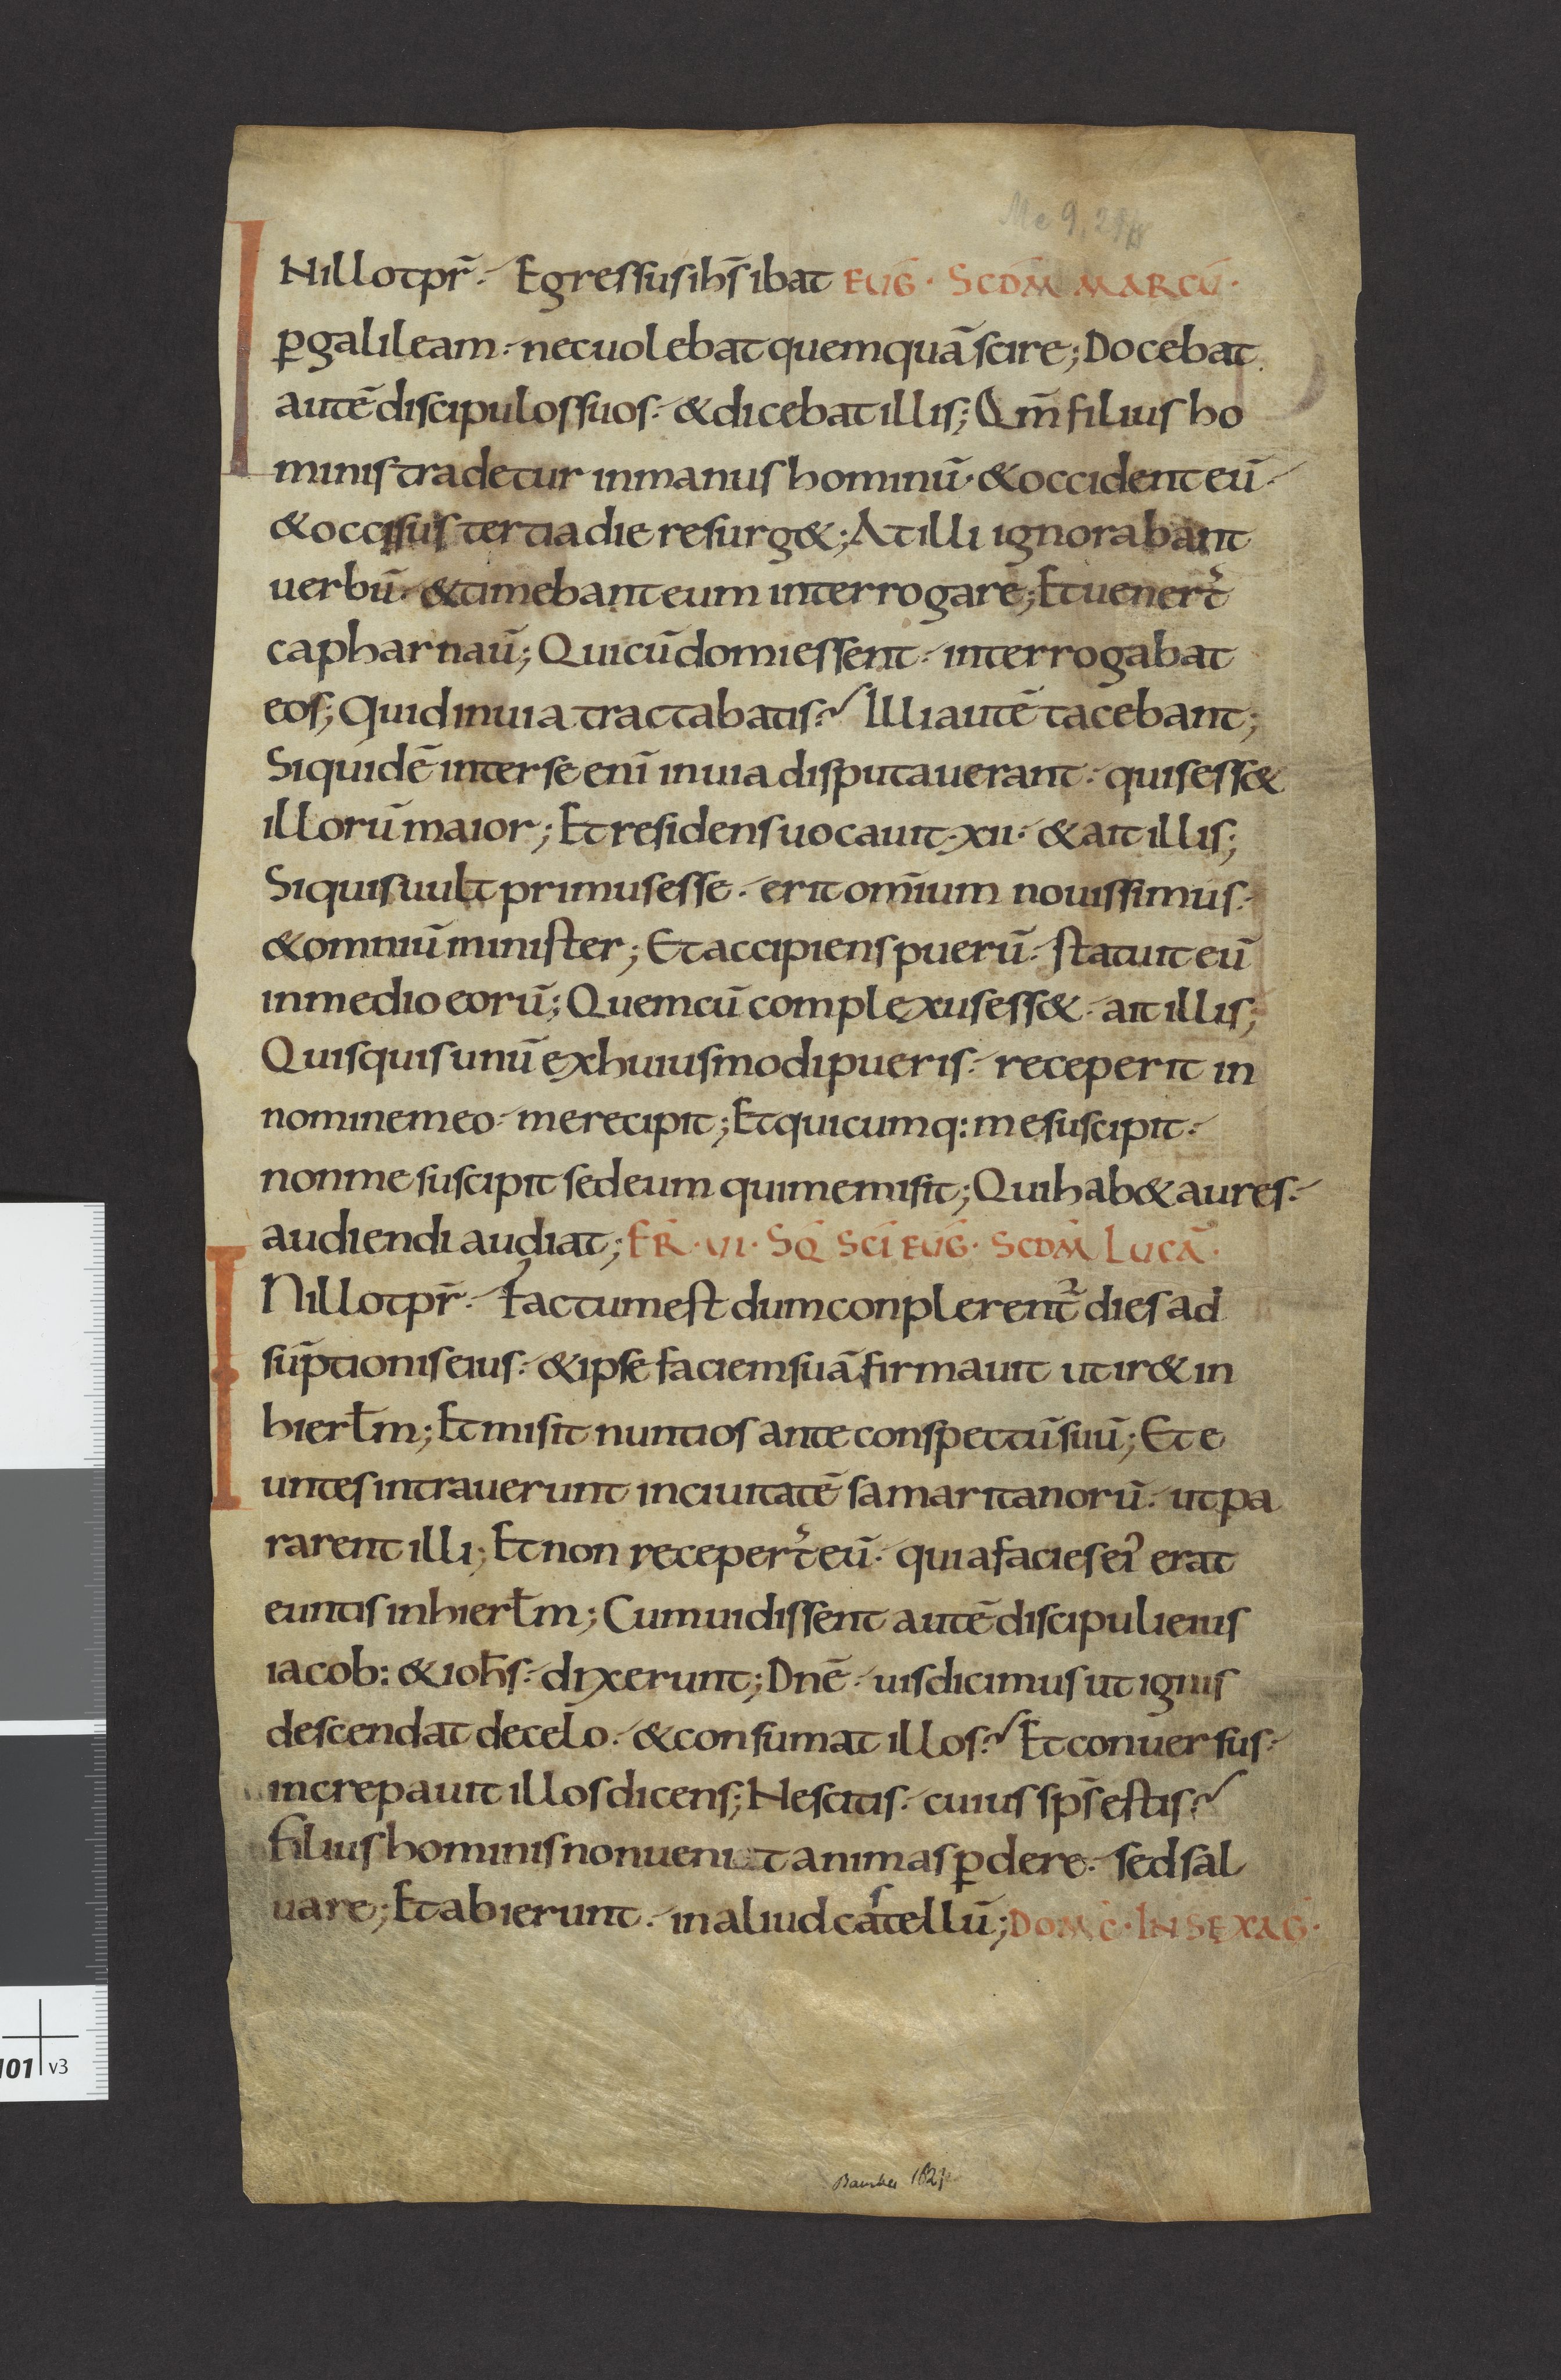 Mc 9, 29ff
INillo tpr̄. Egressus ihs̄ ibat EUḠ · SCDM̄ MARCŪ ·
ꝑ galileam. nec uolebat quemquā scire; Docebat
autē discipulos suos. & dicebat illis; Qm̄ filius ho
minis tradetur in manus hominū. & occident eū.
& occisus tertia die resurg&; At illi ignorabant
uerbū. & timebant eum interrogare; Et uener̄t
capharnaū; Qui cū domi essent. interrogabat
eos; Quid in uia tractabatis? Illi autē tacebant;
Siquidē inter se enī in uia disputauerant. quis ess&
illorū maior; Et residens uocauit · xii · & ait illis;
Si quis uult primus esse. erit om̄ium nouissimus.
& omniū minister; Et accipiens puerū. statuit eū
in medio eorū; Quem cū complexus ess&. ait illis;
Quisquis unū ex huiusmodi pueris. receperit in
nomine meo. me recipit; Et quicumq: me suscipit.
non me suscipit sed eum qui me misit; Qui hab& aures.
audiendi audiat; FR̄ · VI · SQ̄ SCĪ EUḠ · SCDM̄ LUCĀ ·
INillo tpr̄. Factum est dum conplerent᷑ dies ad
sūptionis eius. & ipse faciem suā firmauit ut ir& in
hierłm; Et misit nuntios ante conspectū suū; Et e
untes intrauerunt in ciuitatē samaritanorū. ut pa
rarent illi; Et non receper̄t eū. quia facies ei᾽ erat
euntis in hierłm; Cum uidissent autē discipuli eius
iacob: & ioh̄s. dixerunt; Dnē. uis dicimus ut ignis
descendat de celo. & consumat illos? Et conuersus.
increpauit illos dicens; Nescitis. cuius sp̄s estis?
Filius hominis non uenit animas ꝑdere. sed sal
uare; Et abierunt. in aliud castellū; DOM̄C · IN SEXAḠ ·